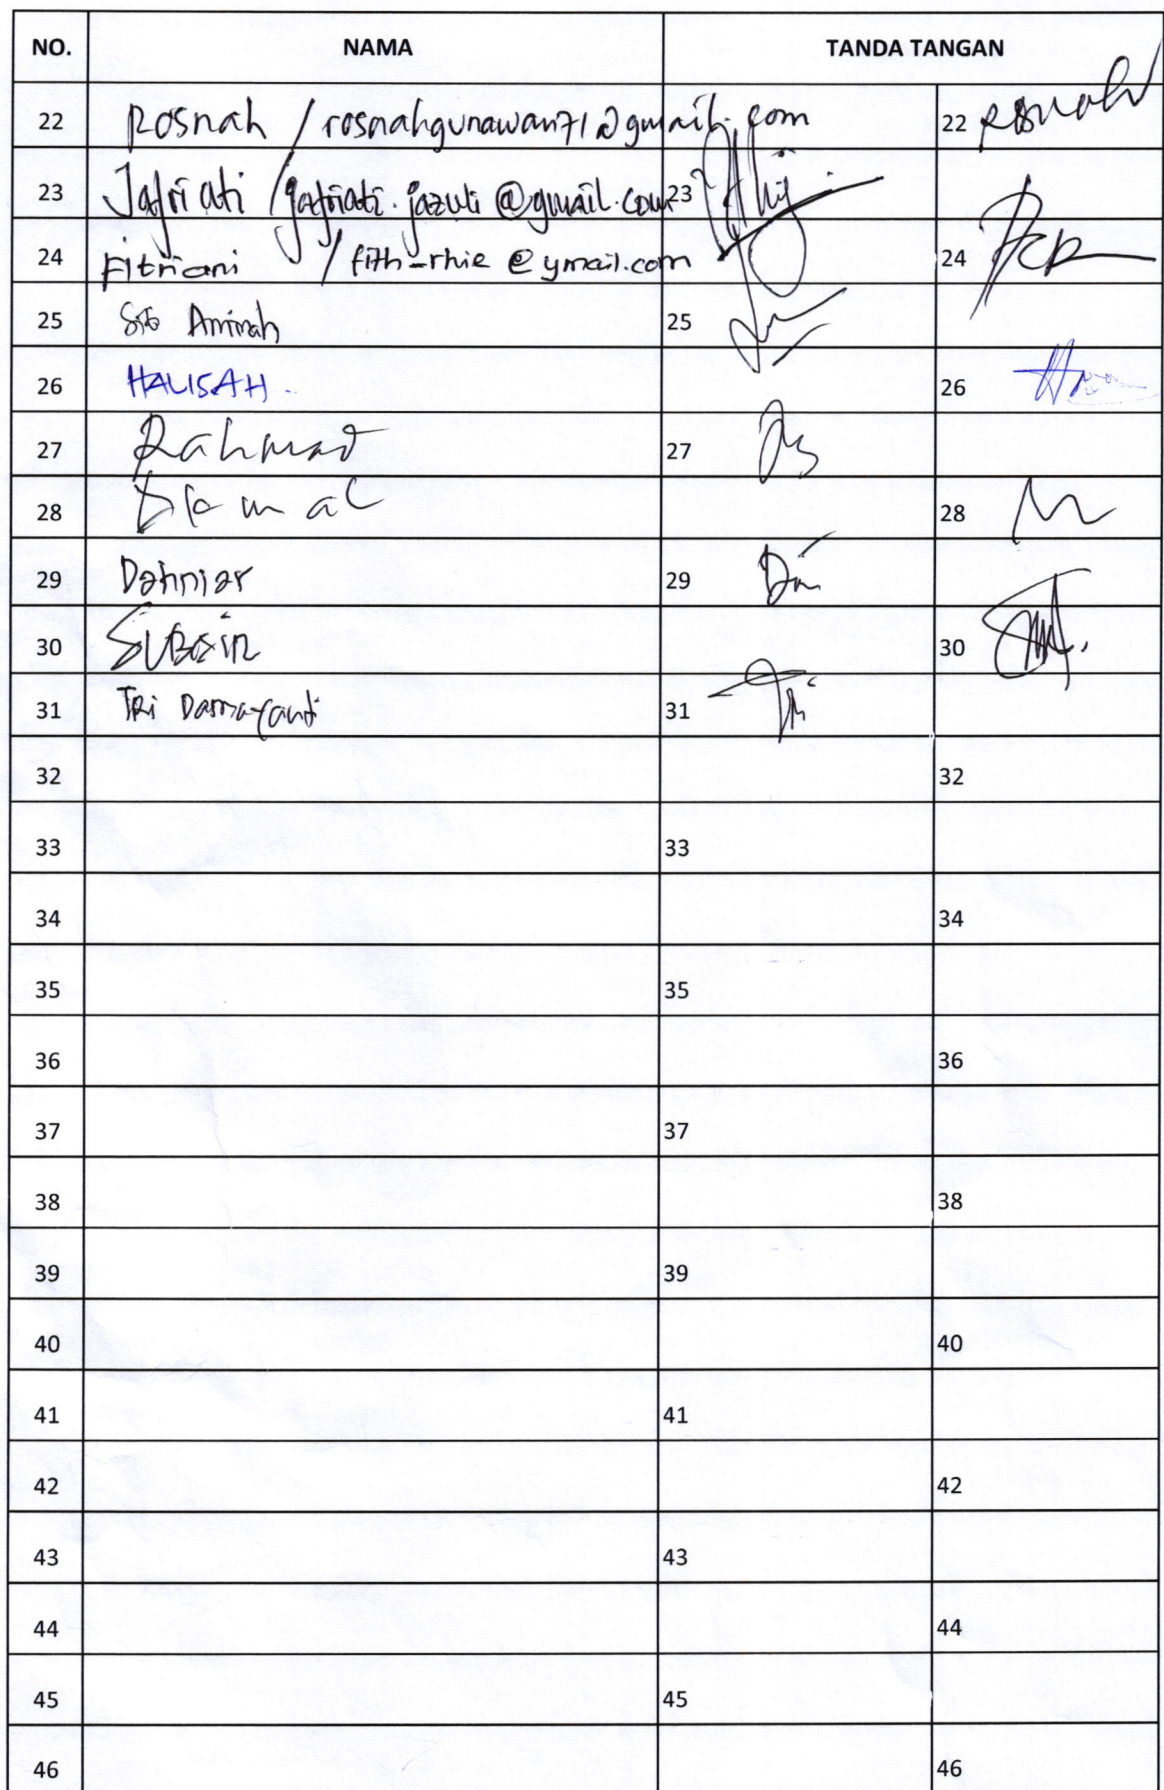 NO. NAMA TANDA TANGAN
22 Rosnah / rosnahgunawan71@gmail.com 22 Rosnah
23 Jafriati / jafriati.jazuli@gmail.com 23
24 Fitriani / fith-rhie@ymail.com 24
25 Siti Aminah 25
26 HALISAH. 26
27 Rahmat 27
28 28
29 Dahniar 29
30 SUBAIR 30
31 TRi Damayanti 31 Tri
32 32
33 33
34 34
35 35
36 36
37 37
38 38
39 39
40 40
41 41
42 42
43 43
44 44
45 45
46 46